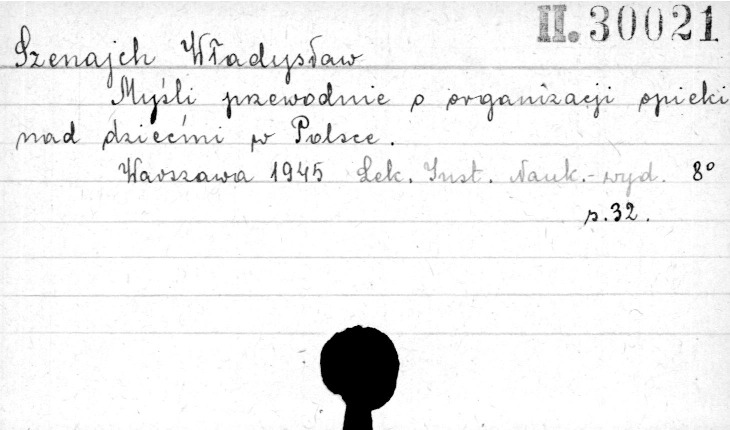 II. 30021
Szenajch Władysław
Myśli przewodnie o organizacji opieki
nad dziećmi w Polsce.
Warszawa 1945 Lek. Inst. Nauk.-wyd. 8°
s. 32.